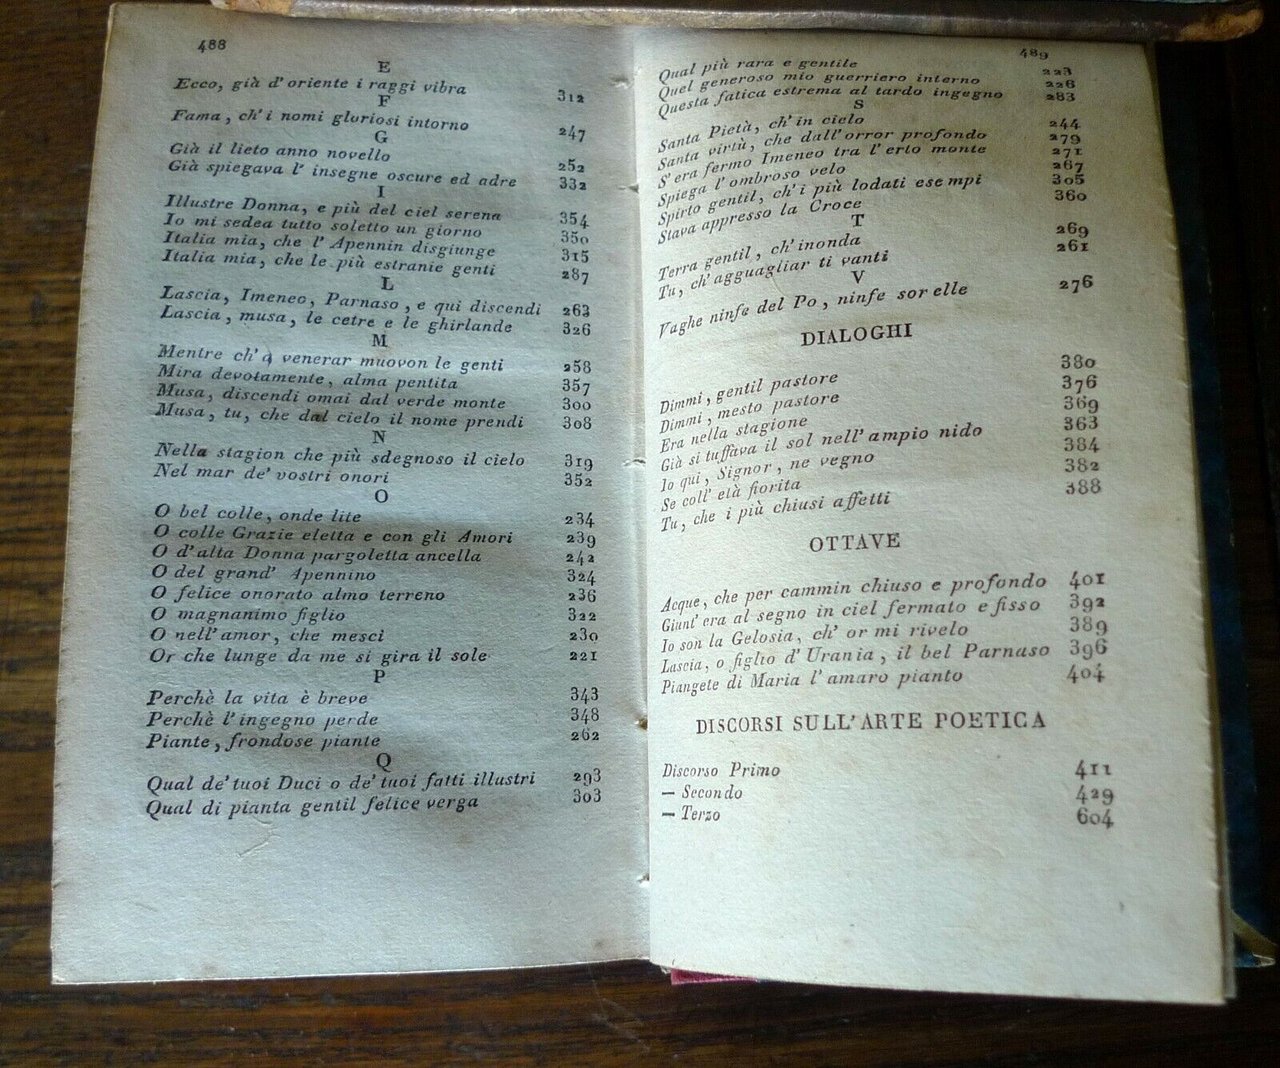 488
E
Ecco, già d'oriente i raggi vibra 312
F
Fama, ch'i nomi gloriosi intorno 247
G
Già il lieto anno novello 252
Già spiegava l' insegne oscure ed adre 332
I
Illustre Donna, e più del ciel serena 354
Io mi sedea tutto soletto un giorno 350
Italia mia, che l' Apennin disgiunge 315
Italia mia, che le più estranie genti 287
L
Lascia, Imeneo, Parnaso, e qui discendi 263
Lascia, musa, le cetre e le ghirlande 326
M
Mentre ch'a venerar muovon le genti 258
Mira devotamente, alma pentita 357
Musa, discendi omai dal verde monte 300
Musa, tu, che dal cielo il nome prendi 308
N
Nella stagion che più sdegnoso il cielo 319
Nel mar de' vostri onori 352
O
O bel colle, onde lite 234
O colle Grazie eletta e con gli Amori 239
O d'alta Donna pargoletta ancella 242
O del grand' Apennino 324
O felice onorato almo terreno 236
O magnanimo figlio 322
O nell'amor, che mesci 230
Or che lunge da me si gira il sole 221
P
Perchè la vita è breve 343
Perchè l'ingegno perde 348
Piante, frondose piante 262
Q
Qual de' tuoi Duci o de' tuoi fatti illustri 293
Qual di pianta gentil felice verga 303
489
Qual più rara e gentile 223
Quel generoso mio guerriero interno 226
Questa fatica estrema al tardo ingegno 283
S
Santa Pietà, ch'in cielo 244
Santa virtù, che dall'orror profondo 279
S'era fermo Imeneo tra l'erto monte 271
Spiega l'ombroso velo 267
Spirto gentil, ch'i più lodati esempi 305
Stava appresso la Croce 360
T
Terra gentil, ch'inonda 269
Tu, ch'agguagliar ti vanti 261
V
Vaghe ninfe del Po, ninfe sorelle 276
DIALOGHI
Dimmi, gentil pastore 380
Dimmi, mesto pastore 376
Era nella stagione 369
Già si tuffava il sol nell'ampio nido 363
Io qui, Signor, ne vegno 384
Se coll' età fiorita 382
Tu, che i più chiusi affetti 388
OTTAVE
Acque, che per cammin chiuso e profondo 401
Giunt' era al segno in ciel fermato e fisso 392
Io son la Gelosia, ch' or mi rivelo 389
Lascia, o figlio d'Urania, il bel Parnaso 396
Piangete di Maria l'amaro pianto 404
DISCORSI SULL'ARTE POETICA
Discorso Primo 411
— Secondo 429
— Terzo 604